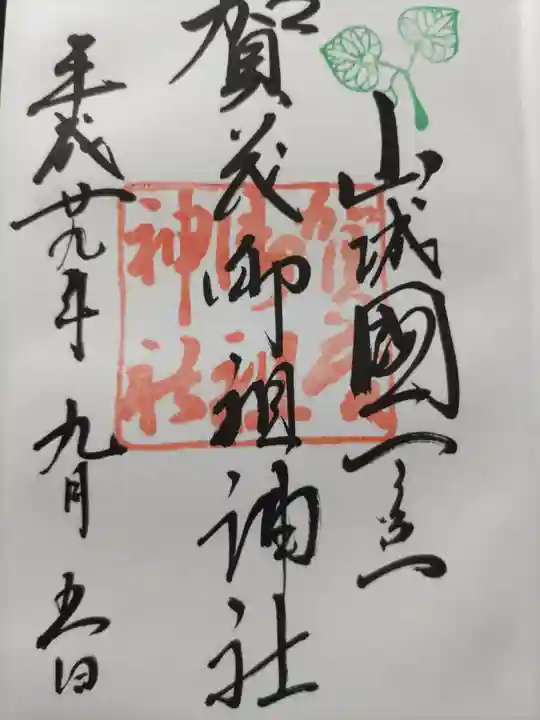 山城國一之宮
賀茂御祖神社
平成廿九年九月五日
賀茂
御祖
神社